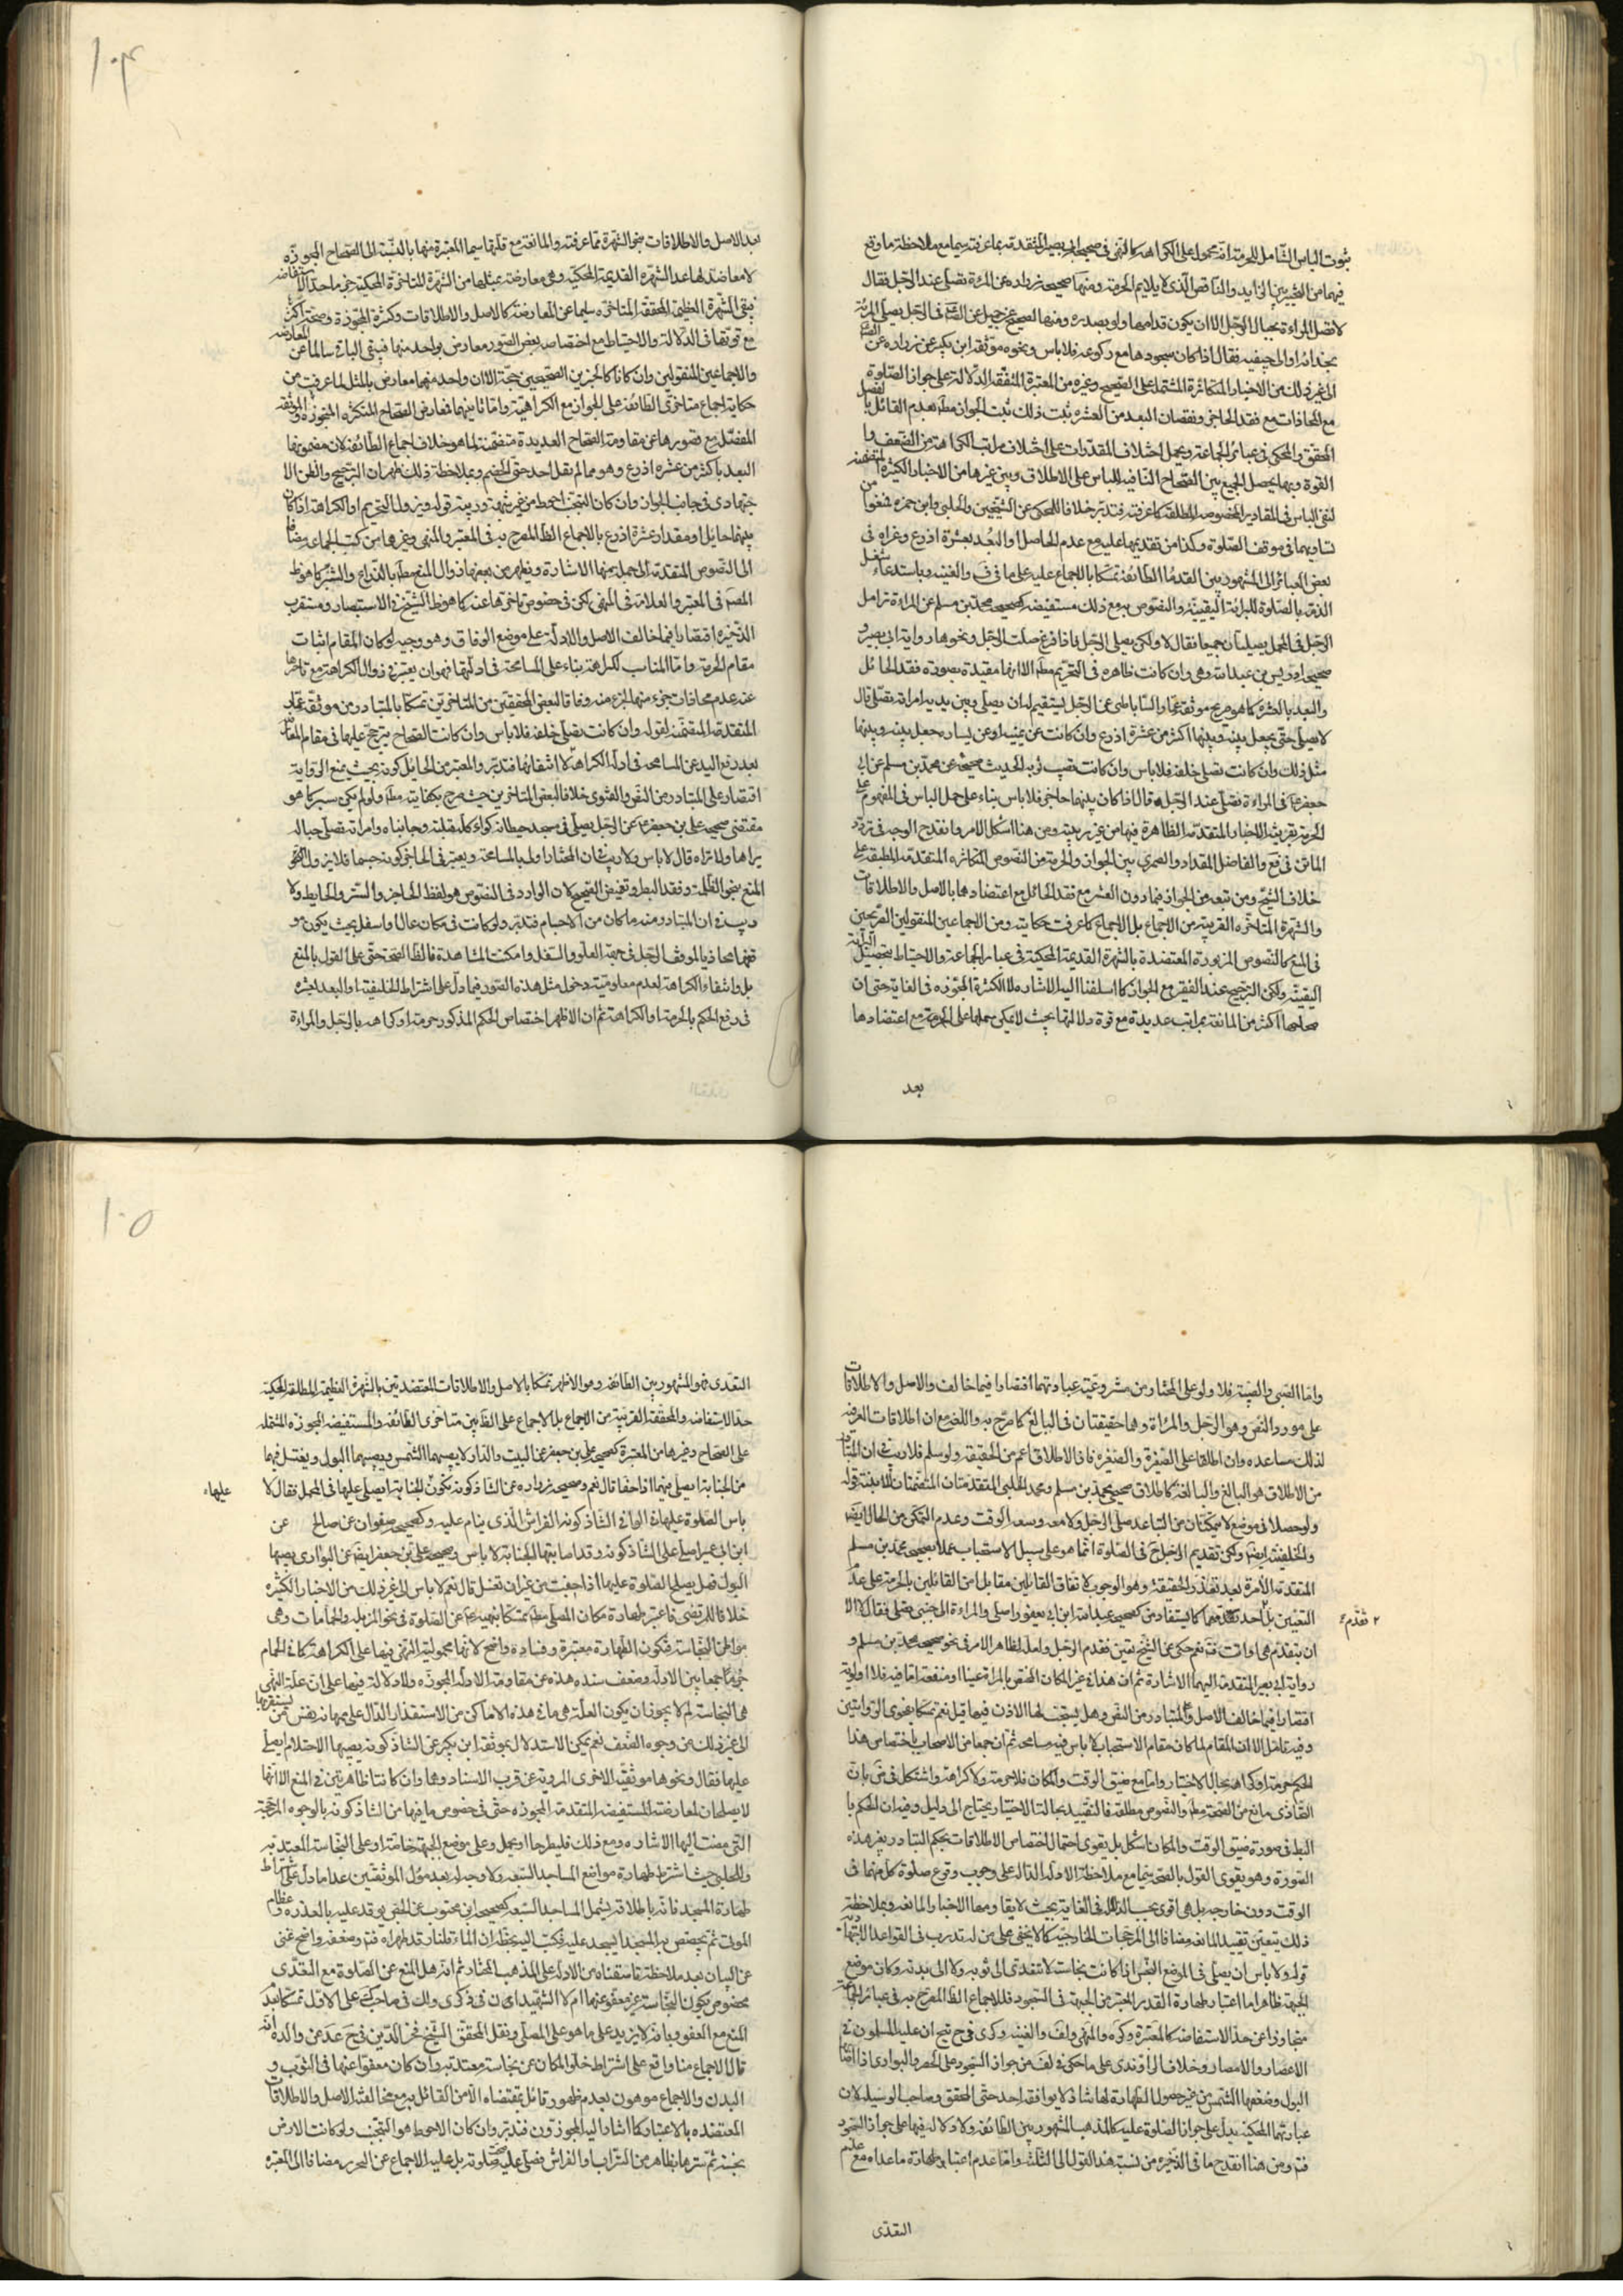 ثبوت الباس الشامل للحرمة انه محمول على الكراهة كالنهى فى صحيح ابى بصير المتقدمة بما عرفته سيما مع ملاحظة ما وقع
فيهما من التخيير بين الزايد والناقص الذى لا يلايم الحرمة ومنها صحيحة زرارة عن المرءة تصلى عند الرجل فقال
لا تصلى المراءة بحيال الرجل الا ان يكون قدامها ولو بصدره ومنها الصحيح عن جميل عن الصادق فى الرجل يصلى والمرءة
بحذاءه او الى جنبيه فقال اذا كان سجودها مع ركوعه فلا باس ونحوه موثقة ابن بكير عن زرارة عن
الى غير ذلك من الاخبار المتكاثرة المشتملة على الصحيح وغيره من المعتبرة المتفقة الدلالة على جواز الصلوة
مع المحاذات مع فقد الحاجز ونقصان البعد من العشرة ثبت ذلك ثبت الجواز مطلقا بعدم القائل بالفصل
المحقق والمحكى فى عبائر الجماعة ويحمل اختلاف المقدرات على اختلاف مراتب الكراهة من الضعف و
القوة وبهذا يحصل الجمع بين الصحاح النافية للباس على الاطلاق وبين غيرها من الاخبار الكثيرة المتضمنة
لنفى الباس فى المقادير المخصوصة المطلقة كما عرفته فتدبر خلافا للمحكى عن الشيخين والحلبى وابن حمزه فمنعوا من
تساويهما فى موقف الصلوة وكذا من تقديمها عليه مع عدم الحاصل او البعد بعشرة اذرع وعزاه فى
بعض العبائر الى المشهور بين القدماء الطائفة تمسكا بالاجماع عليه على ما فى ف والغنيه وباستدعاء شغل
الذمة بالصلوة للبرائة اليقينية والنصوص به مع ذلك مستفيضة كصحيحة محمد بن مسلم عن المراءة تزامل
الرجل فى المحمل يصليان جميعا فقال لا ولكن يصلى الرجل فاذا فرغ صلت الرجل ونحوها رواية ابى بصير و
صحيحة ادريس بن عبد الله وهى وان كانت ظاهره فى التحريم مطلقا الا انها مقيدة بصورة فقد الحائل
والبعد بالعشرة كما هو صريح موثقة عمار الساباطى عن الرجل يستقيم له ان يصلى وبين يديه امراة تصلى قال
لا يصلى حتى يجعل بينه وبينها اكثر من عشرة اذرع وان كانت عن يمينه او عن يساره جعل بينه وبينها
مثل ذلك وان كانت تصلى خلفه فلا باس وان كانت تصيب ثوبه الحديث صحيحة عن محمد بن مسلم عن ابى
جعفر فى المراءة تصلى عند الرجل قال اذا كان بينهما حاجز فلا باس بناء على حمل الباس فى المفهوم على
الحرمة بقرينة الاخبار المتقدمة الظاهرة فيها من غير ريبة ومن هنا اشكل الامر وانقدح الوجه فى تردد
الماتن فى فع والفاضل المقداد والصيمرى بين الجواز والحرمة من النصوص المتكاثره المتقدمة المطبقة على
خلاف الشيخ ومن تبعه من الجواز فيما دون العشر مع فقد الحائل مع اعتضادها بالاصل والاطلاقات
والشهرة المتاخرة القريبة من الاجماع بل الاجماع كما عرفت حكايته ومن الاجماعين المنقولين الصريحين
فى المنع كالنصوص المزبورة المعتضدة بالشهرة القديمة المحكية فى عبار الجماعة والاحتياط بتحصيل البرائة
اليقينية ولكن الترجيح عند الفقير مع الجواز كما اسلفنا اليه الاشاره لا الكثرة المجوزه فى الغاية حتى ان
صحاحها اكثر من المانعة بمراتب عديدة مع قوة دلالتها بحيث لا يمكن حملها على الحرمة مع اعتضادها
بعد
١٠٤
بعد الاصل والاطلاقات بنحو الشهرة مما عرفته والمانعة مع قلتها سيما المعتبرة منها بالنسبة الى الصحاح المجوزه
لا معاضد لها عد الشهرة القديمة المحكية وهى معارضة بمثلها من الشهرة المتاخرة المحكية خبر ما حد الاستفاضه
فيبقى الشهرة العظيمة المحققة المتاخره سليما عن المعارضة كالاصل والاطلاقات وكثرة المجوزة وصحة اكثر
مع قوتها فى الدلالة والاحتياط مع اختصاصه ببعض الصور معارض بواحد منها فيبقى الباقى سالما عن المعارضه
والاجماعين المنقولين وان كانا كالخبرين الصحيحين حجة الا ان واحد منهما معارض بالمثل لما عرفت من
حكاية اجماع متاخرى الطائفة على الجواز مع الكراهية واما ثانيهما فعارض الصحاح المتكثره المجوزه والموثقه
المفصل مع قصورها عن مقاومة الصحاح العديدة متضمنة لما هو خلاف اجماع الطائفة لان مضمونها
البعد باكثر من عشره اذرع وهو مما لم يقل احد حتى الخصم وبملاحظة ذلك ظهر ان الترجيح والظن الا
جتهادى فى جانب الجواز وان كان التجنب احوط من غير شبهة وريبة قوله ويزول التحريم او الكراهة اذا كان
بينهما حايل او مقدار عشرة اذرع بالاجماع الظاهر المصرح به فى المعتبر والمنتهى وغيرهما من كتب الجماعة مضافا
الى النصوص المتقدمة الى جملة منها الاشارة ويظهر من بعضها زوال المنع مطلقا بالذراع والشبر كما هو ظ
المصنف فى المعتبر والعلامة فى المنتهى لكن فى خصوص تاخرها عنه كما هو ظ الشيخ فى الاستبصار ومستقرب
الذخيره اقتصارا فيما خالف الاصل والادلة على موضع الوفاق وهو وجيه لو كان المقام اثبات
مقام الحرمة واما المناسب للكراهة بناء على المسامحة فى ادلتها فهو ان يعتبر فى زوال الكراهة مع تاخرها
عنه عدم محاذات جزء منها لجزء منه وفاقا لبعض المحققين من المتاخرين تمسكا بالمتبادر من موثقة عمار
المتقدمة المتضمنة لقوله وان كانت تصلى خلفه فلا باس وان كانت الصحاح يترجح عليها فى مقام المعارضة
بعد رفع اليد عن المسامحة فى ادلة الكراهة لا انتفائها فتدبر والمعتبر من الحايل كونه بحيث يمنع الرواية
اقتصار على المتبادر من النص والفتوى خلافا لبعض المتاخرين حيث صرح بكفايته مطلقا ولو لم يكن ستيرا كما هو
مقتضى صحيحة على بن جعفر عن الرجل يصلى فى مسجد حيطانه كواء كله قبلته وجانباه وامراته تصلى حياله
يراها ولا تراه قال لا باس ولا ريب ان المختار اولى بالمسامحة ويعتبر فى الحاجز كونه جسما فلا يزول المنع
المنع بنحو الظلمة وفقد البصر وتغميض الصحيح لان الوارد فى النصوص هو لفظ الحاجز والستر والحايط ولا
ريب فى ان المتبادر منه ما كان من الاجسام فتدبر ولو كانت فى مكان عال او اسفل بحيث يكون هو
فيهما محاذيا لموقف الرجل فى جهة العلو والسفل وامكنت المشاهدة فالظاهر الصحة حتى على القول بالمنع
بل وانتفاء الكراهة لعدم معلومية دخول مثل هذه الصور فيما دل على اشتراط الخلفية او البعد بعشره
فى رفع الحكم بالحرمة او الكراهة ثم ان الاظهر اختصاص الحكم المذكور حرمة او كراهه بالرجل والمراءة
واما الصبى والصبية فلا ولو على المختار من مشروعية عباداتهما اقتصارا فيما خالف والاصل والاطلاقات
على مورد النص وهو الرجل والمراة وهما حقيقتان فى البالغ كما صرح به واللغة مع ان اطلاقات العرفيه
لذلك مساعده وان اطلقا على الصغيرة والصغيره فاذا الاطلاق اعم من الحقيقة ولو سلم فلا ريب فى ان المتبادر
من الاطلاق هو البالغ والبالغة كاطلاق صحيحى محمد بن مسلم ومحمد الحلبى المتقدمتان المتضمنتان للابنة قوله
ولو حصلا فى موضع لا يتمكنان من التباعد صلى الرجل ولا معه وسعة الوقت وعدم التمكن من الحائل ايضا
والخلفية ايضا ولكن تقديم الرجل فى الصلوة انما هو على سبيل الاستحباب عملا بصحيح محمد بن مسلم
المتقدمة الامرة بعد تعذر الحقيقة وهو الوجوب لاتفاق القائلين مقابل امن القائلين بالحرمة على عدم
التعيين بل احد منهما كما يستفاد من كصحيحى عبد الله ابن ابى يعفور اصلى والمراءة الى جنبى تصلى فقال لا الا
٢ تقدم ع
ان يتقدم هى او انت فتم نعم حكى عن الشيخ تعين تقدم الرجل ولعله لظاهر الامر فى نحو صحيحة محمد بن مسلم و
رواية ابى بصير المتقدمة اليهما الاشارة ثم ان هذا فى غير المكان المختص بالمراة عينا او منفعة اما فيه فلا اولوية
اقتصارا فيما خالف الاصل والمتبادر من النص وهل يستحب لها الاذن فيما قيل نعم تمسكا بفحوى الروايتين
وفيه تامل الا ان المقام لما كان مقام الاستحباب لا باس فيه مسامحة ثم ان جمعا من الاصحاب باختصاص هذا
الحكم حرمة او كراهة بحالة الاختيار واما مع ضيق الوقت والمكان فلا حرمة ولا كراهة واشتكل فى ض بان
التحاذى مانع من الصحة مطلقا والنصوص مطلقة فالتقييد بحالة الاختيار يحتاج الى دليل وفيه ان الحكم با
لبط فى صورة ضيق الوقت والمكان اشكل بل يقوى احتمال اختصاص الاطلاقات بحكم التبادر بغير هذه
الصورة وهو يقوى القول بالصحة سيما مع ملاحظة الادلة الدالة على وجوب وقوع صلوة كل منهما فى
الوقت دون خارجه بل هى اقوى بحسب الدلالة فى الغاية بحيث لا يقاومها الاخبار المانعه وبملاحظة
ذلك يتعين تقييد المانعة مضافا الى المرجحات الخارجية كما لا يخفى على من له تدرب فى القواعد الاجتهادية
قوله ولا باس ان يصلى فى الموضع النجس اذا كانت نجاسته لا تتعدى الى ثوبه ولا الى بدنه وكان موضع
الجبهة طاهرا اما اعتبار طهارة القدر المعتبر من الجبهة فى السجود فللاجماع الظاهر المصرح به فى عبائر الجماعة
متجاوزا عن حد الاستفاضه كالمعتبرة وكره والمنتهى ولف والغنيه وكرى فى ح تيج ان عليه المسلمون فى
الاعصار والامصار وخلاف الراوندى على ما حكى فى لف من جواز السجود على الحصر والبوارى اذا اصابها
البول وجففها الشمس من غير حصول الطهارة لها شاذ لا يوافقه احد حتى المحقق وصاحب الوسيله لان
عبارتهما المحكية يدل على جواز الصلوة عليه كالمذهب المشهور بين الطائفة ولا دلاله فيها على جواز السجود
فتم ومن هنا انقدح ما فى الذخيره من نسبة هذا القول الى الثلثة واما عدم اعتبار طهارة ماعداه مع عدم
التعدى
١٠٥
التعدى فهو المشهور بين الطائفة وهو الاظهر تمسكا بالاصل والاطلاقات المعتضدتين بالشهرة العظيمة المطلقة المحكية
حد الاستفاضه والمحققة القريبة من الاجماع بل الاجماع على الظاهر بين متاخرى الطائفه والمستفيضه المجوزه المشتمله
على الصحاح وغيرها من المعتبرة كصحيحى على بن جعفر عن البيت والدار لا يصيبهما الشمس ويصيبهما البول ويغتسل فيهما
من الجنابة ايصلى فيهما اذا جفا قال نعم وصحيحه زراره عن الشاذكونة يكون الجنابة ايصلى عليها فى المحمل فقال لا
عليها
باس الصلوة عليها وفى الوافى الشاذكونه الفراش الذى ينام عليه وكصحيحى صفوان عن صالح عن
ابن ابى عمير اصلى على الشاذكونه وقد اصابتها الجنابة لا باس وصحيحه على بن جعفر ايضا عن البوارى يصيبها
البول هل يصلح الصلوة عليها اذا جفت من غير ان تغسل قال نعم لا باس الى غير ذلك من الاخبار الكثيره
خلافا للمرتضى فاعتبر طهارة مكان المصلى مطلقا تمسكا بنهيه عن الصلوة فى نحو المزبله والحمامات وهى
مواطن النجاسة فتكون الطهارة معتبرة وفساده واضح لانها محمولية النهى فيها على الكراهة كما فى الحمام
جمعا بين الادلة وضعف سنده هذه عن مقاومة الادلة المجوزة ولا دلالة فيها على ان علة النهى
هى النجاسة لم لا يجوز ان يكون العلة هى ما فى هذه الاماكن من الاستقذار الدال على مهانة نفس من يستقر بها
الى غير ذلك من وجوه الضعف نعم يمكن الاستدلال بموثقة ابن بكير عن الشاذكونه يصيبها الاحتلام ايصلى
عليها فقال ونحوها موثقته الاخرى المروية عن قرب الاسناد وهما وان كانتا ظاهرتين فى المنع الا انها
لا يصلحان لمعارضة المستفيضه المتقدمة المجوزه حتى فى خصوص ما فيهما من الشاذكونه بالوجوه المرجحة
التى مضت اليها الاشاره ومع ذلك فليطرحا او يحمل وعلى موضع الجبهة خاصة او على النجاسة المعتد به
وللحلبى حيث اشترط طهارة مواضع المساجد السبعه ولا وجه له بعد مؤل الموثقين عدا ما دل على اشتراط
طهارة المسجد فانه باطلاقه يشمل المساجد السبعه كصحيحه ابن محبوب عن الجص يوقد عليه بالعذره وعظام
الموتى ثم يجصص به المسجد ايسجد عليه فكتب اليه بخطه ان الماء والنار قد طهراه فتم وضعفه واضح غنى
عن البيان بعد ملاحظة ما سقناه من الادلة على المذهب المختار ثم انه هل المنع عن الصلوة مع التعدى
مخصوص بكون النجاسة غير معفو عنها ام لا الشهيدان فى ذكرى ولك فى صاحب ك على الاول تمسكا بعد
المنع مع العفو وبانه لا يزيد على ما هو على المصلى ونقل المحقق الشيخ فخر الدين فى ح عد عن والده انه
قال الاجماع منا واقع على اشتراط خلو المكان عن نجاسة متعدية وان كان معفوا عنها فى الثوب و
البدن والاجماع موهون بعدم ظهور قائل بمقتضاه الا من القائل به مع مخالفة الاصل والاطلاقات
المعتضده بالاعتبار كما اشار اليه المجوزون فتدبر وان كان الاحوط هو التجنب ولو كانت الارض
نجسة ثم سترها بظاهر من التراب والفراش فصلى عليه صحت صلوته بل عليه الاجماع عن التحرير مضافا الى المعتبره